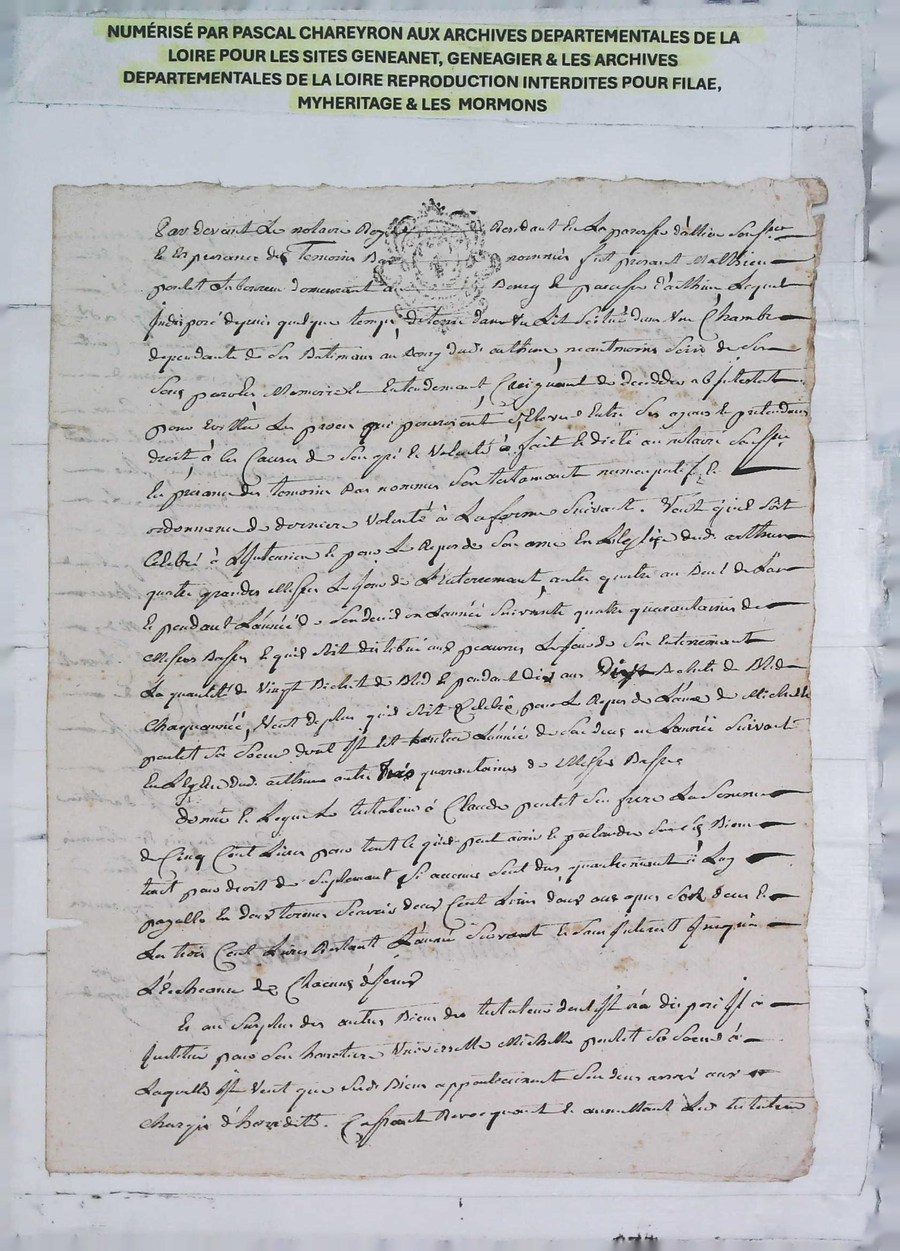 NUMÉRISÉ PAR PASCAL CHAREYRON AUX ARCHIVES DEPARTEMENTALES DE LA
LOIRE POUR LES SITES GENEANET, GENEAGIER & LES ARCHIVES
DEPARTEMENTALES DE LA LOIRE REPRODUCTION INTERDITES POUR FILAE,
MYHERITAGE & LES MORMONS
Par devant Le notaire Roy Residant En La paroisse
Et En presance des Temoins Bas nommés fut presant Mathieu
poulet Laboureur demeurant Bourg et paroisse d'arthun Lequel
Indisposé depuis quelque temps detenu dans un Lit Scitué dans une Chambre
dependante de Ses Batimans au Bourg dud arthun neantmoins Sein de Ses
Sens parolles Memoire et Entendement Craignant de decedder abintestat
pour Eviter Les proces que pouroient Eslever Entre Ses ayans et pretendans
droit à En Causes de Son gré et Volonté à fait et dicté au notaire
En presance des temoins Bas nommes Son testamant noncupatif et
ordonnance de derniere Volonté à La forme Suivant. Veut qu'il Soit
Celebré à L'Intention et pour Le Repos de Son ame En L'Eglise dud arthun
quatre grandes Messes Le jour de L'Enterremant, autre quatre au Bout de L'an
et pendant L'année de Son deuid ou L'année Suivante quatre quarantaines de
Messes Basses Et qu'il Soit distribué aux pauvres Le jour de Son Enterrement
La quantité de Vingt Bichet de Bled et pendant dix ans Bichets de Bled
Chaque année, Veut de plus qu'il Soit Celebré pour Le Repos de L'ame de Michelle
poulet Sa Soeur L'année de Son deces ou L'année Suivante
En L'Eglise dud arthun autre trois quarantaines de Messes Basses
donne et Legue Le testateur à Claude poulet Son frere La Somme
de Cinq Cent Livres pour tout Ce qu'il peut avoir et pretandre Sur Ses Biens
tant pour droit de Suplement Si aucuns Sont dus qu'autremant
payable En deux termes Scavoir deux Cent Livres deux ans apres Son deces et
Les trois Cent Livres Restant L'année Suivante et Sans Interest Jusqu'à
L'Echeance de Chacuns d'Iceux
Et au Surplus des autres Biens dud testateur dont Il n'a disposé Il a
Institué pour Son heritiere Universelle Michelle poulet Sa Soeur à
Laquelle Il Veut que Sesd Biens appartiennent Son deces arrivé aux
Charges d'heredité. Cassant Revocquant et annullant Led testateur